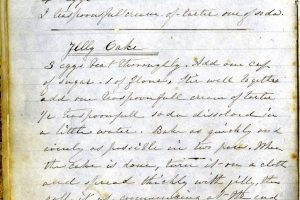 1 teaspoonful cream of tartar one of soda.
Jelly Cake
3 eggs beat thoroughly. Add one cup
of sugar, 1 of flour, stir well together
add one teaspoonful cream of tartar
½ teaspoonful soda dissolved in
a little water. Bake as quickly and
evenly as possible in two pans. When
the cake is done, turn it on a cloth
and spread thickly with jelly, then
roll it up commencing at the end